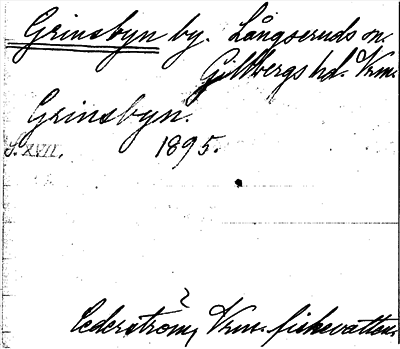 Grinsbyn by. Långseruds sn.
Gillbergs hd. Vrm.
Grinsbyn.
S. XVII. 1895.
Cederström, Vrm. fiskevatten.